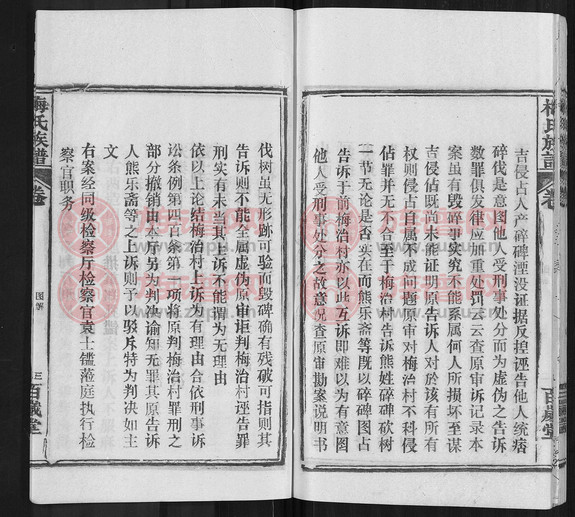 梅氏族譜
卷
百歲堂
吉侵占人产碎碑湮没证据反捏诬告他人统痞
碎伐是意图他人受刑事处分而为虚伪之告诉
数罪俱发律应加重处罚云云查原审诉记录本
案虽有毁碎事实究不能系属何人所损坏至谋
吉侵佔既尚未能证明原告诉人对於该有所有
权则侵占自属不成问题原审对梅治村不科侵
佔罪并无不合至于梅治村告熊姓碎碑砍树
一节无论是否实在而熊乐斋等既以碎碑图占
告诉于前梅治村亦以此互诉即难以为有意图
他人受刑事处分之故意况查原审勘案说明书
伐树虽无形跡可验而毁碑确有残破可指则其
告诉则不能全属虚伪原审讵判梅治村诬告罪
刑实有未当其上诉不能谓为无理由
依以上论结梅治村上诉为有理由合依刑事诉
讼条例第四百条第一项将原判梅治村罪刑之
部分撤销由本厅另为判决谕知无罪其原告诉
人熊乐斋等之上诉则予以驳斥特为判决如主
文
右案经同级检察厅检察官袁士鑑莅庭执行检
察官职务
梅氏族譜
卷
图解
三
百歲堂